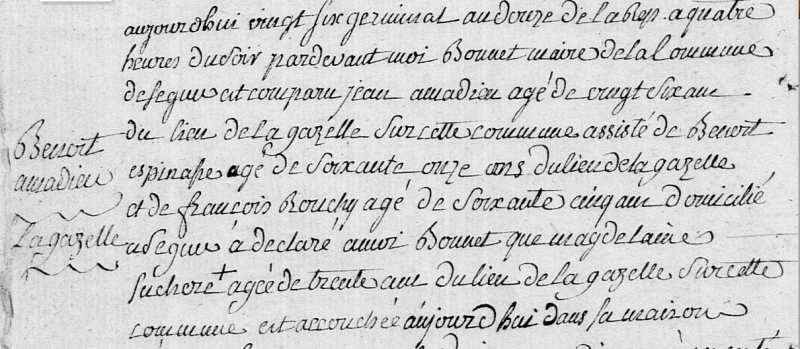 aujourdhui vingt six germinal an douze de la Rep. a quatre
heures du soir pardevant moi Bonnet maire de la Commune
de segur est comparu jean amadieu agé de vingt six ans
du lieu de la gazelle sur cette commune assisté de Benoit
espinasse agé de soixante onze ans du lieu de la gazelle
et de françois Bouchy agé de soixante cinq ans domicilié
a segur à declaré a moi Bonnet que magdelaine
sucheré + agée de trente ans du lieu de la gazelle sur cette
commune est accouchée aujourdhui dans sa maison
Benoit
amadieu
La gazelle